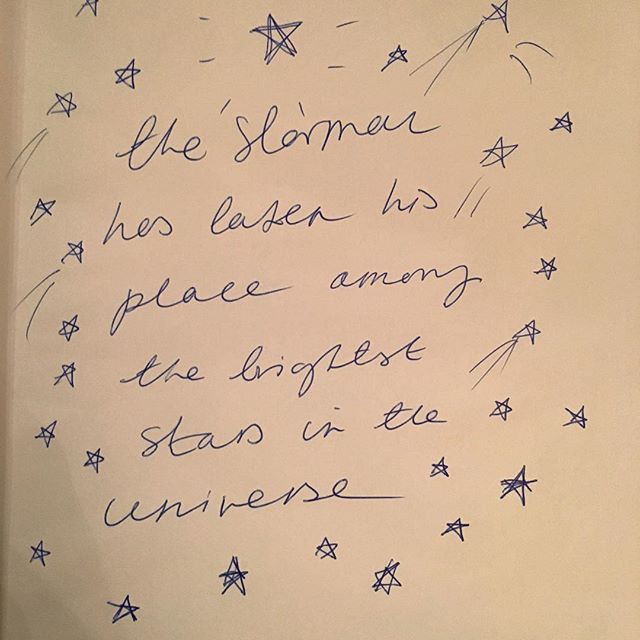 the 'starman
has taken his
place among
the brightest
stars in the
universe